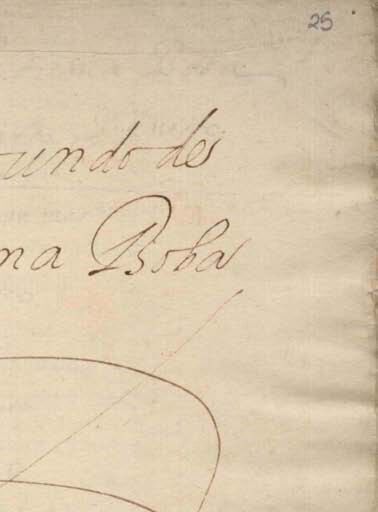 25
undo de
ma Boba